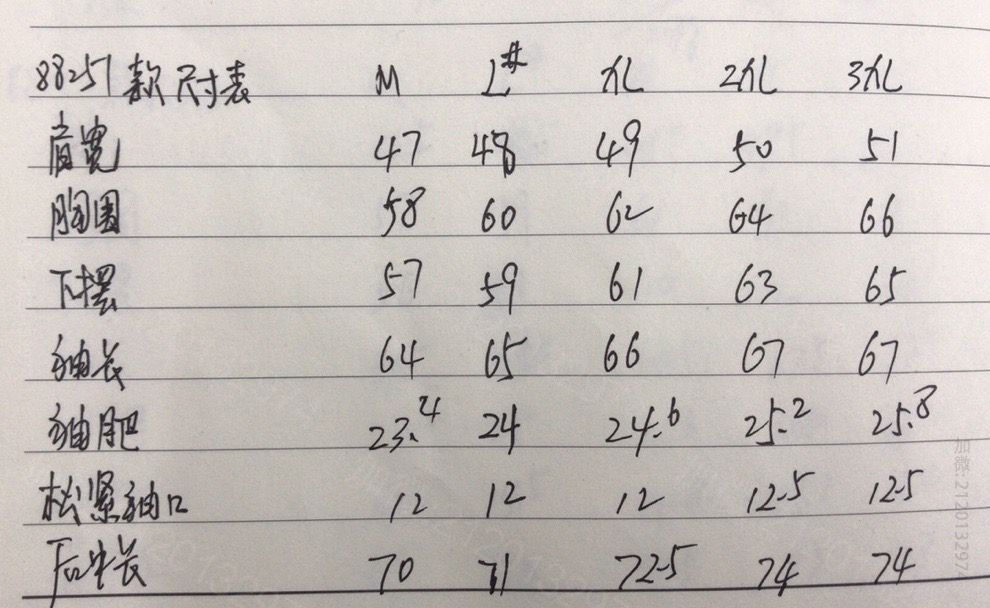 88257款尺寸表 M L# XL 2XL 3XL
肩宽 47 48 49 50 51
胸围 58 60 62 64 66
下摆 57 59 61 63 65
袖长 64 65 66 67 67
袖肥 23.4 24 24.6 25.2 25.8
松紧袖口 12 12 12 12.5 12.5
后中长 70 71 72.5 74 74
加微: 2120132974